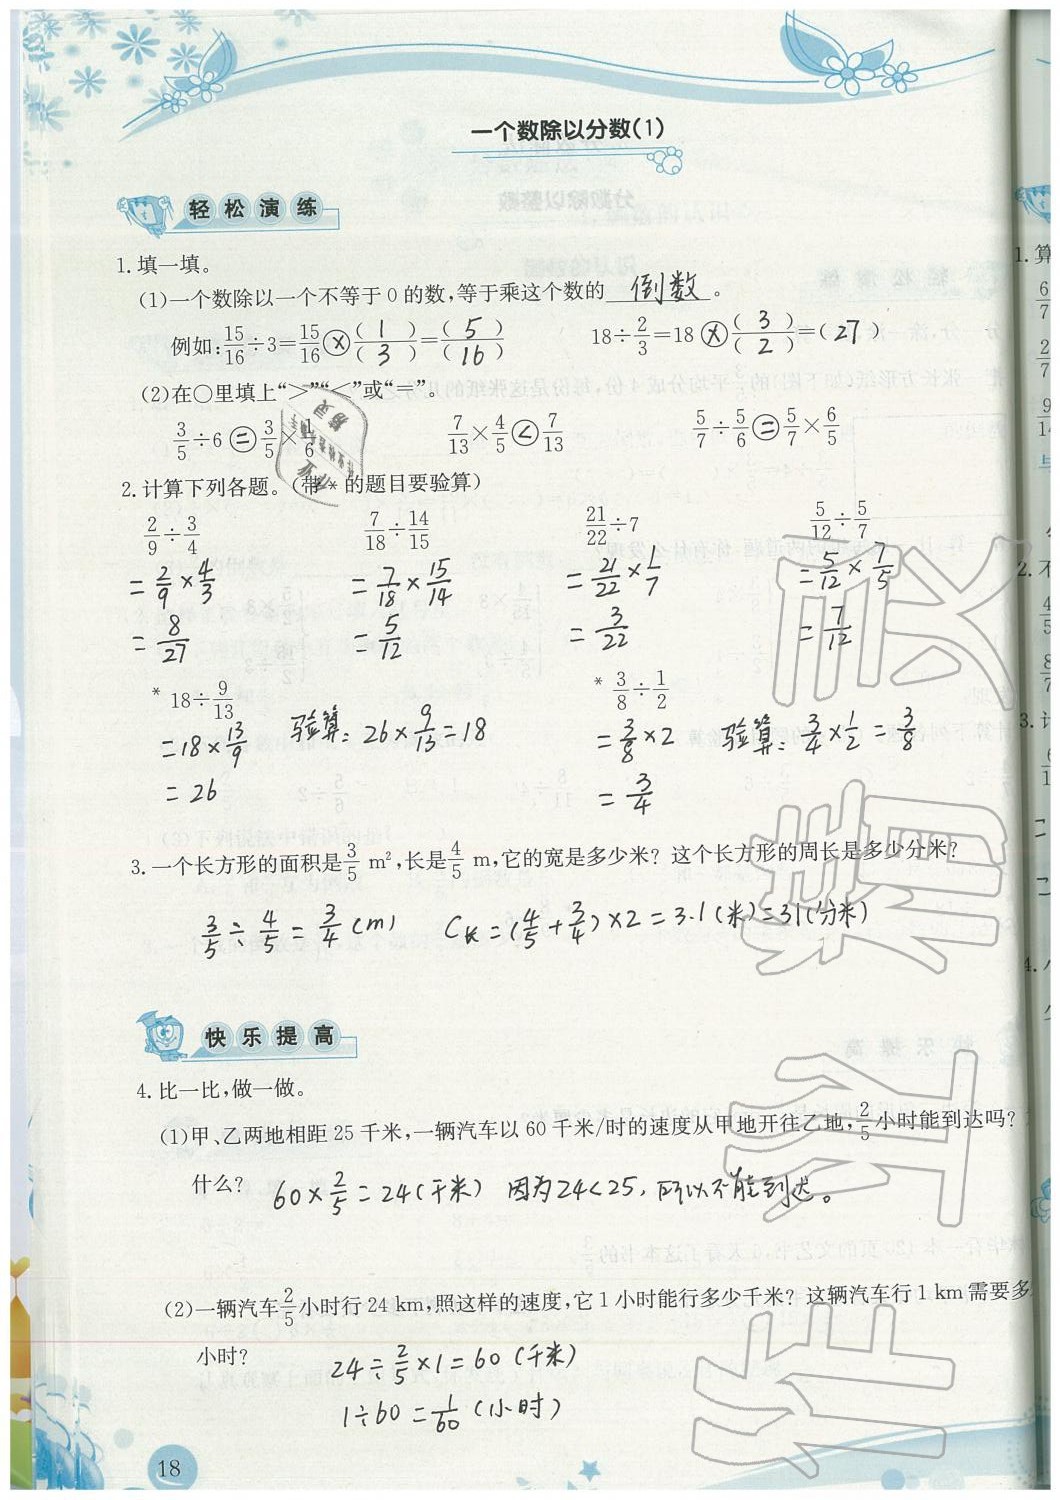 一个数除以分数(1)
轻松演练
1. 填一填。
(1)一个数除以一个不等于0的数,等于乘这个数的 倒数 。
例如:15/16÷3=15/16⊗(1)/(3)=(5)/(16)  18÷2/3=18⊗(3)/(2)=(27)
(2)在○里填上“>”“<”或“=”。
3/5÷6㊀=3/5×1/6  7/13×4/5<7/13  5/7÷5/6=5/7×6/5
2. 计算下列各题。(带*的题目要验算)
2/9÷3/4  7/18÷14/15  21/22÷7  5/12÷5/7
=2/9×4/3  =7/18×15/14  =21/22×1/7  =5/12×7/5
=8/27  =5/12  =3/22  =7/12
*18÷9/13  *3/8÷1/2
=18×13/9  验算:26×9/13=18  =3/8×2  验算:3/4×1/2=3/8
=26  =3/4
3. 一个长方形的面积是3/5 m²,长是4/5 m,它的宽是多少米?这个长方形的周长是多少分米?
3/5÷4/5=3/4(m)  C长=(4/5+3/4)×2=3.1(米)=31(分米)
快乐提高
4. 比一比,做一做。
(1)甲、乙两地相距25千米,一辆汽车以60千米/时的速度从甲地开往乙地,2/5小时能到达吗?
什么?  60×2/5=24(千米) 因为24<25,所以不能到达。
(2)一辆汽车2/5小时行24 km,照这样的速度,它1小时能行多少千米?这辆汽车行1 km需要多
小时?  24÷2/5×1=60(千米)
1÷60=1/60(小时)
18